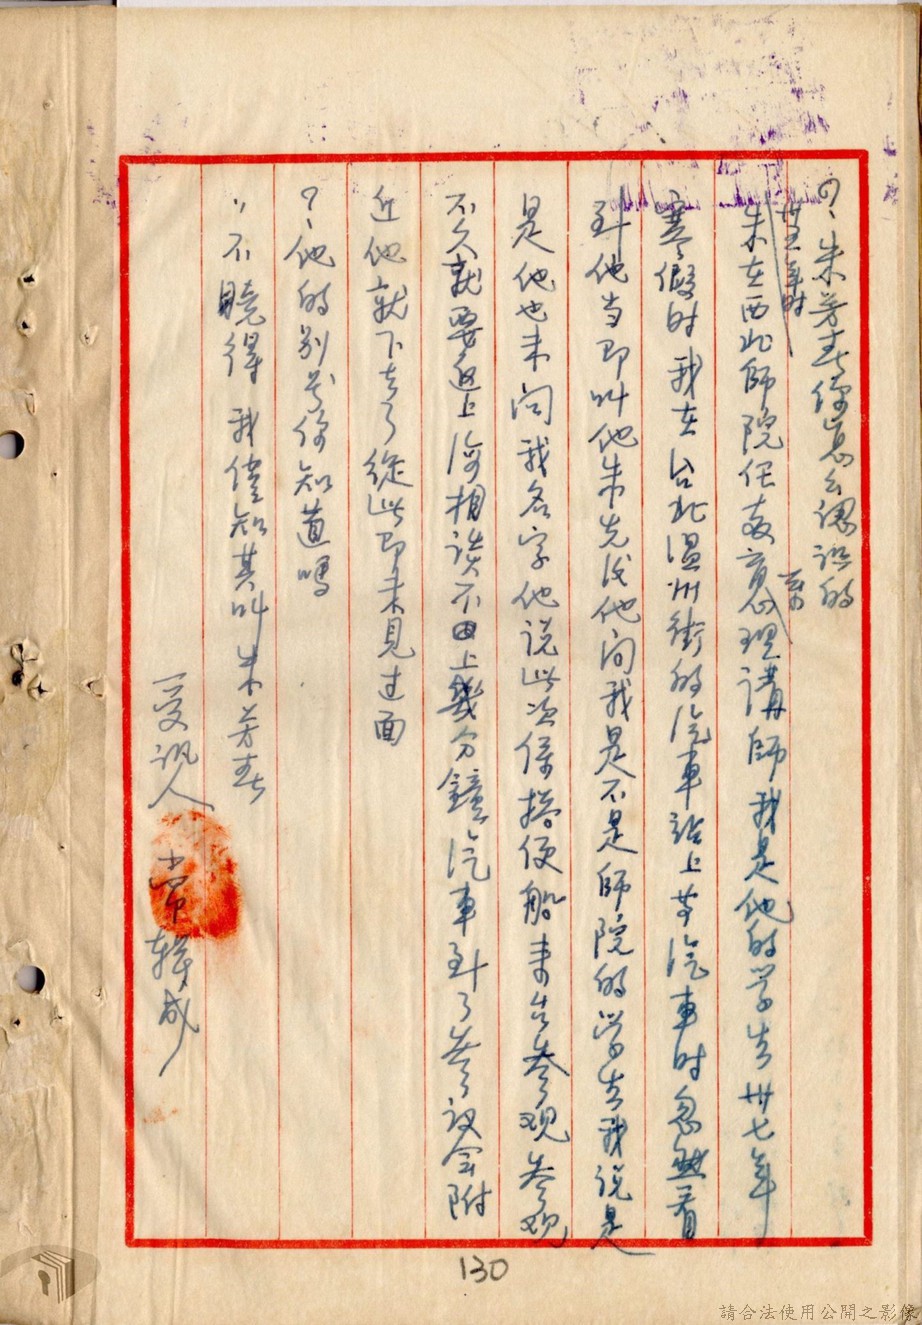 ？、朱芳春你怎么認識的
卅五年时
朱在西北師院任教育心理講師我是他的学生卅七年
系
寒假时我在台北温州街的汽車站上等汽車时忽然看
到他当即叫他朱先生他问我是不是師院的学生我说是
是他也未问我名字他说此次係搭便船来台参观参观
不久就要返上海相談不由上幾分鐘汽車到了参议会附
近他就下去了從此即未見过面
？、他的别号你知道嗎
〃不曉得 我僅知其叫朱芳春
受訊人 常輯成
130
請合法使用公開之影像